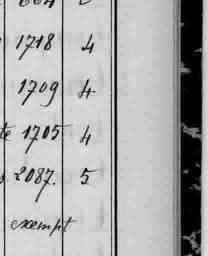 1718 4
1709 4
te 1705 4
2087. 5
exempt